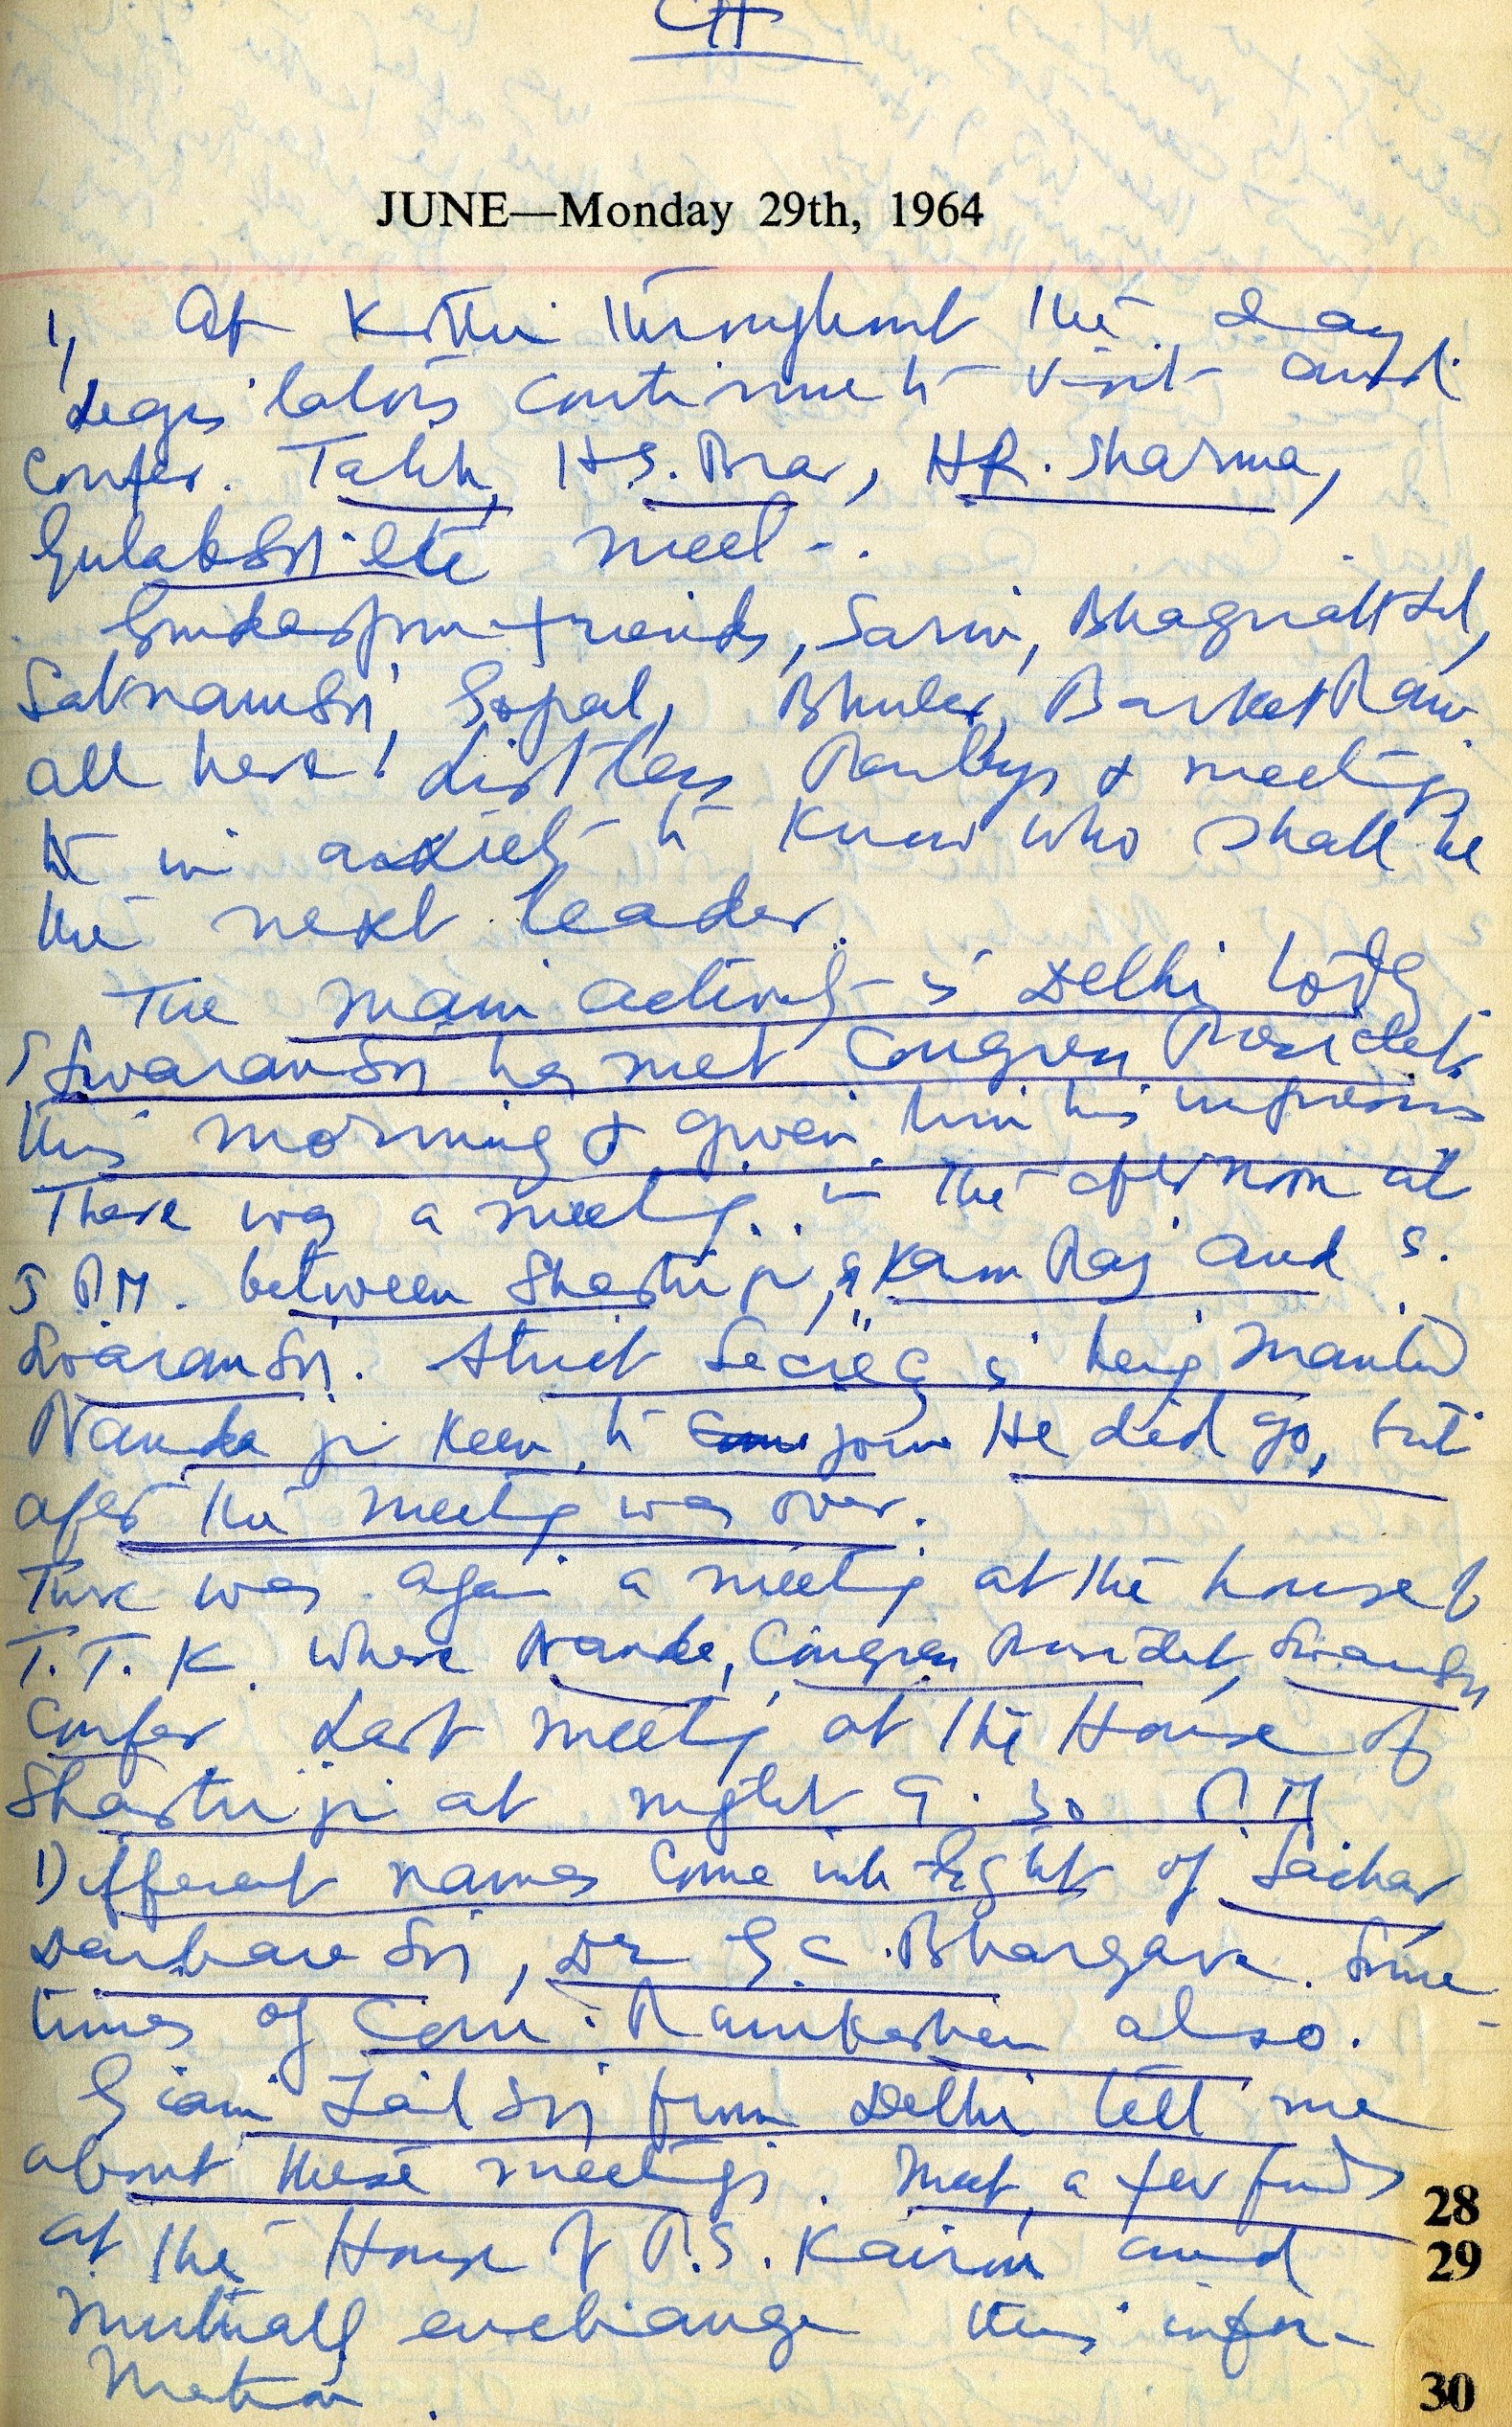 CH
JUNE—Monday 29th, 1964
1, At Kothi throughout the day.
Legislators continue to visit and
confer. H.S. Brar, H.R. Sharma,
Gulab Sn etc meet -.
Gurdaspur friends, Sarin, Bhagnatt Lal,
Satnam Sn, Gopal, Bhuler, Barket Ram
all here! Listless & meetings
in to know who shall be
the next leader.
The main activity is Delhi today
S Swaran Sn has met Congress President
this morning & given him his impressions
There was a meeting in the afternoon at
5 P.M. between Shastri ji, & Kam Raj and S.
Swaran Sn. Strict Secrecy is being maintd
Nanda ji keen to join He did go, but
after the meeting was over.
There was again a meeting at the house of
T.T.K. where Nanda, Congress President, Swaran Sn
Confer Last meeting at the House of
Shastri ji at night 9.30 P.M
Different names come into light of Sachar
Darbara Sn, Dr G.C. Bhargava. Some
times of Com. Ramkishan also.
Giani Zail Sn from Delhi tell me
about these meetings. Meet a few friends
at the House of P.S. Kairon and
mutually exchange this infor-
mation.
28
29
30